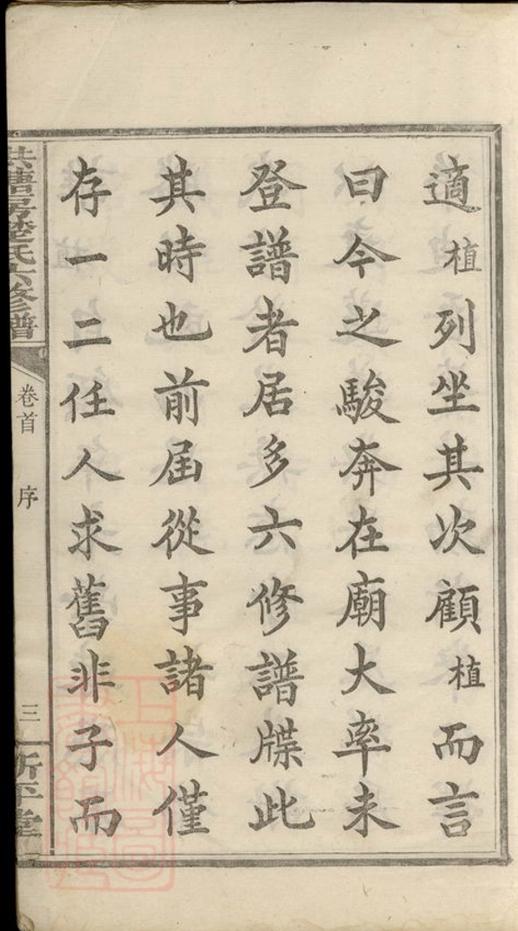 適植列坐其次顧植而言
曰今之駿奔在廟大率未
登譜者居多六修譜牒此
其時也前屆從事諸人僅
存一二任人求舊非子而
房楚氏六修譜
卷首
序
三